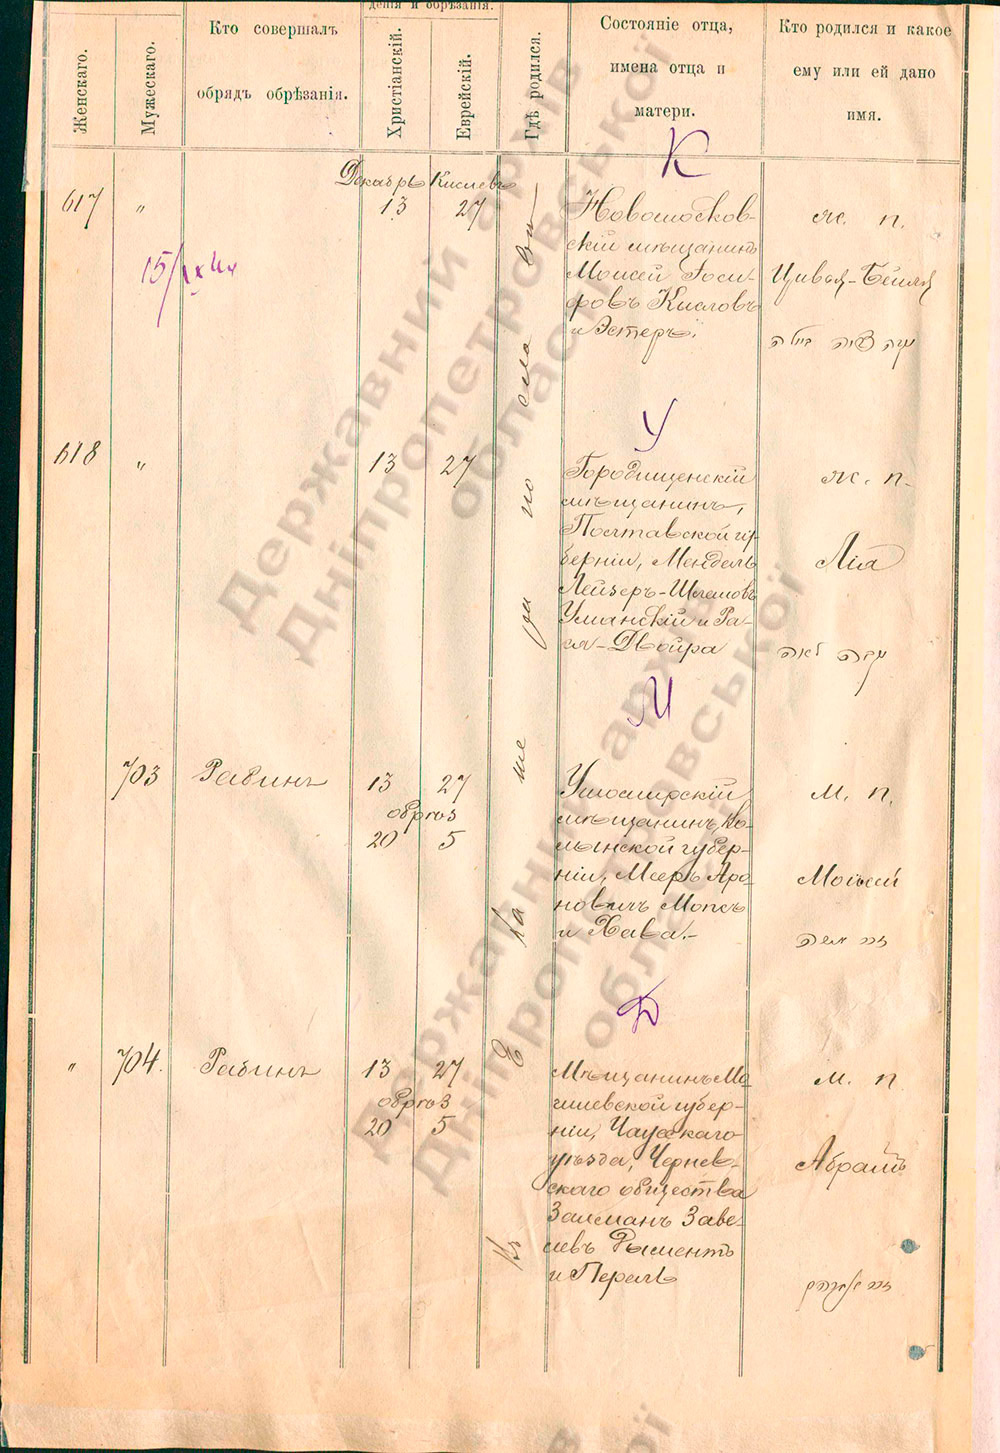 Женскаго.
Мужескаго.
Кто совершалъ
обрядъ обрѣзанія.
денія и обрѣзанія.
Христіанскій.
Еврейскій.
Гдѣ родился.
Состояніе отца,
имена отца и
матери.
Кто родился и какое
ему или ей дано
имя.
К
Декабрь Кислевъ
617 " 13 27
Новомосков-
скій мѣщанинъ
Моисей Іоси-
фовъ Кисловъ
и Эстеръ.
ж. п.
Цивья-Бейля
У
618 " 13 27
Городищенскій
мѣщанинъ,
Полтавской гу-
берніи, Мендель
Лейзеръ-Шлемовъ
Уманскій и Ра-
ся-Двойра
ж. п.
Лія
לאה
М
703 Рабинъ 13 27
обрѣз
20 5
Ушомирскій
мѣщанинъ, Во-
лынской губер-
ніи, Мееръ Аро-
новичъ Мопсъ
и Хава.-
м. п.
Моисей
משה
Д
" 704. Рабинъ 13 27
обрѣз
20 5
Мѣщанинъ Мо-
гилевской губер-
ніи, Чаусскаго
уѣзда, Чернев-
скаго общества
Залманъ Заве-
левъ
и Перля
м. п.
Абрамъ
Екате
Державний архів
Дніпропетровської
області
Державний архів
Дніпропетровської
області